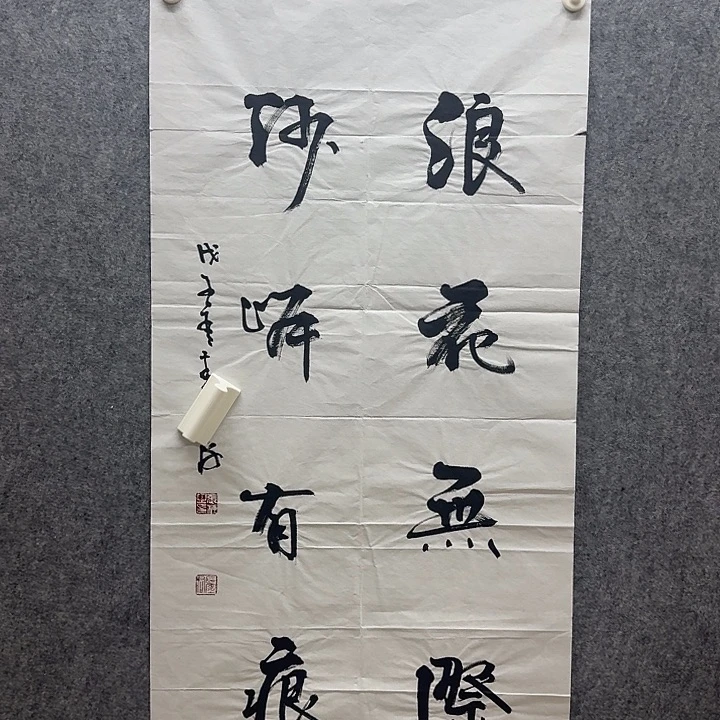 浪花無際
沙岸有痕
戊子年